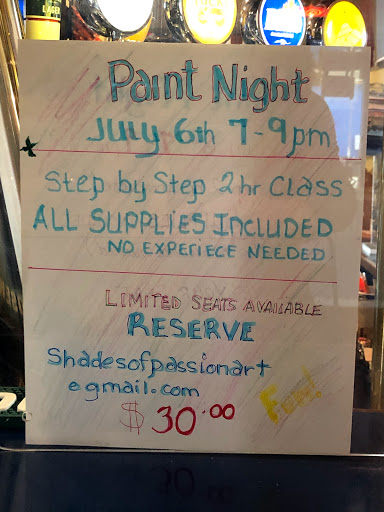 LAGER
Paint Night
July 6th 7-9pm
Step by Step 2hr Class
ALL SUPPLIES INCLUDED
NO EXPERIECE NEEDED
LIMITED SEATS AVAILABLE
RESERVE
Shadesofpassionart
@gmail.com
$30.00
Fun!